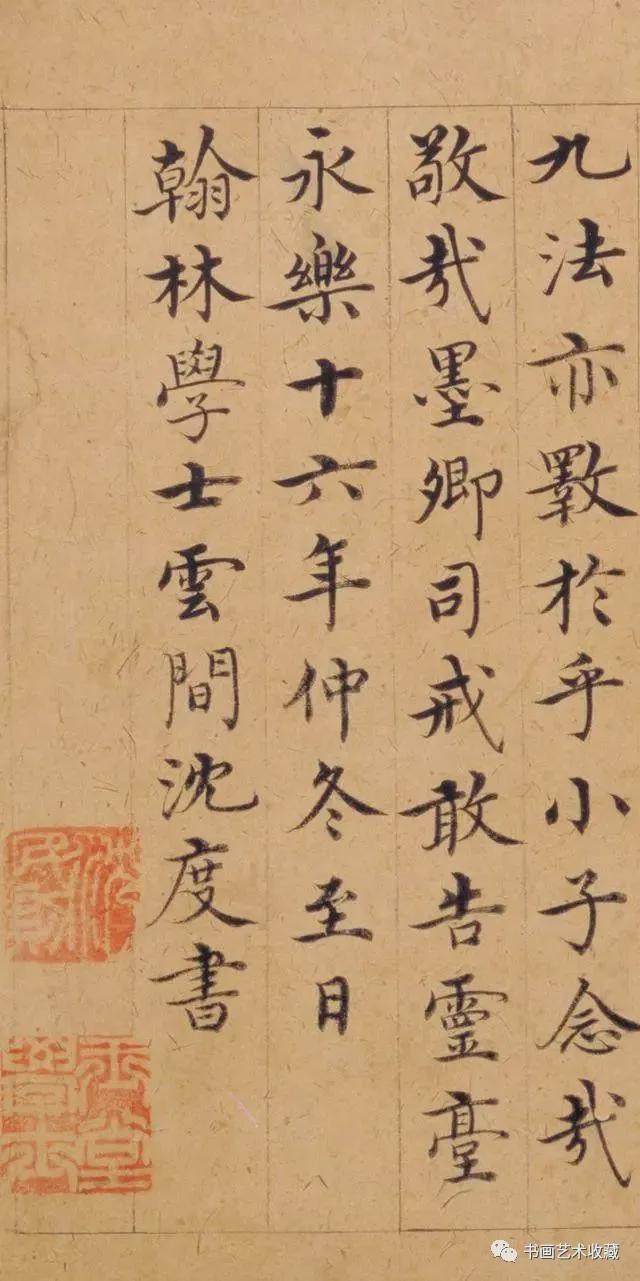 九法亦斁於乎小子念哉
敬哉墨卿司戒敢告靈臺
永樂十六年仲冬至日
翰林學士雲間沈度書
沈民則
玉堂學士
书画艺术收藏